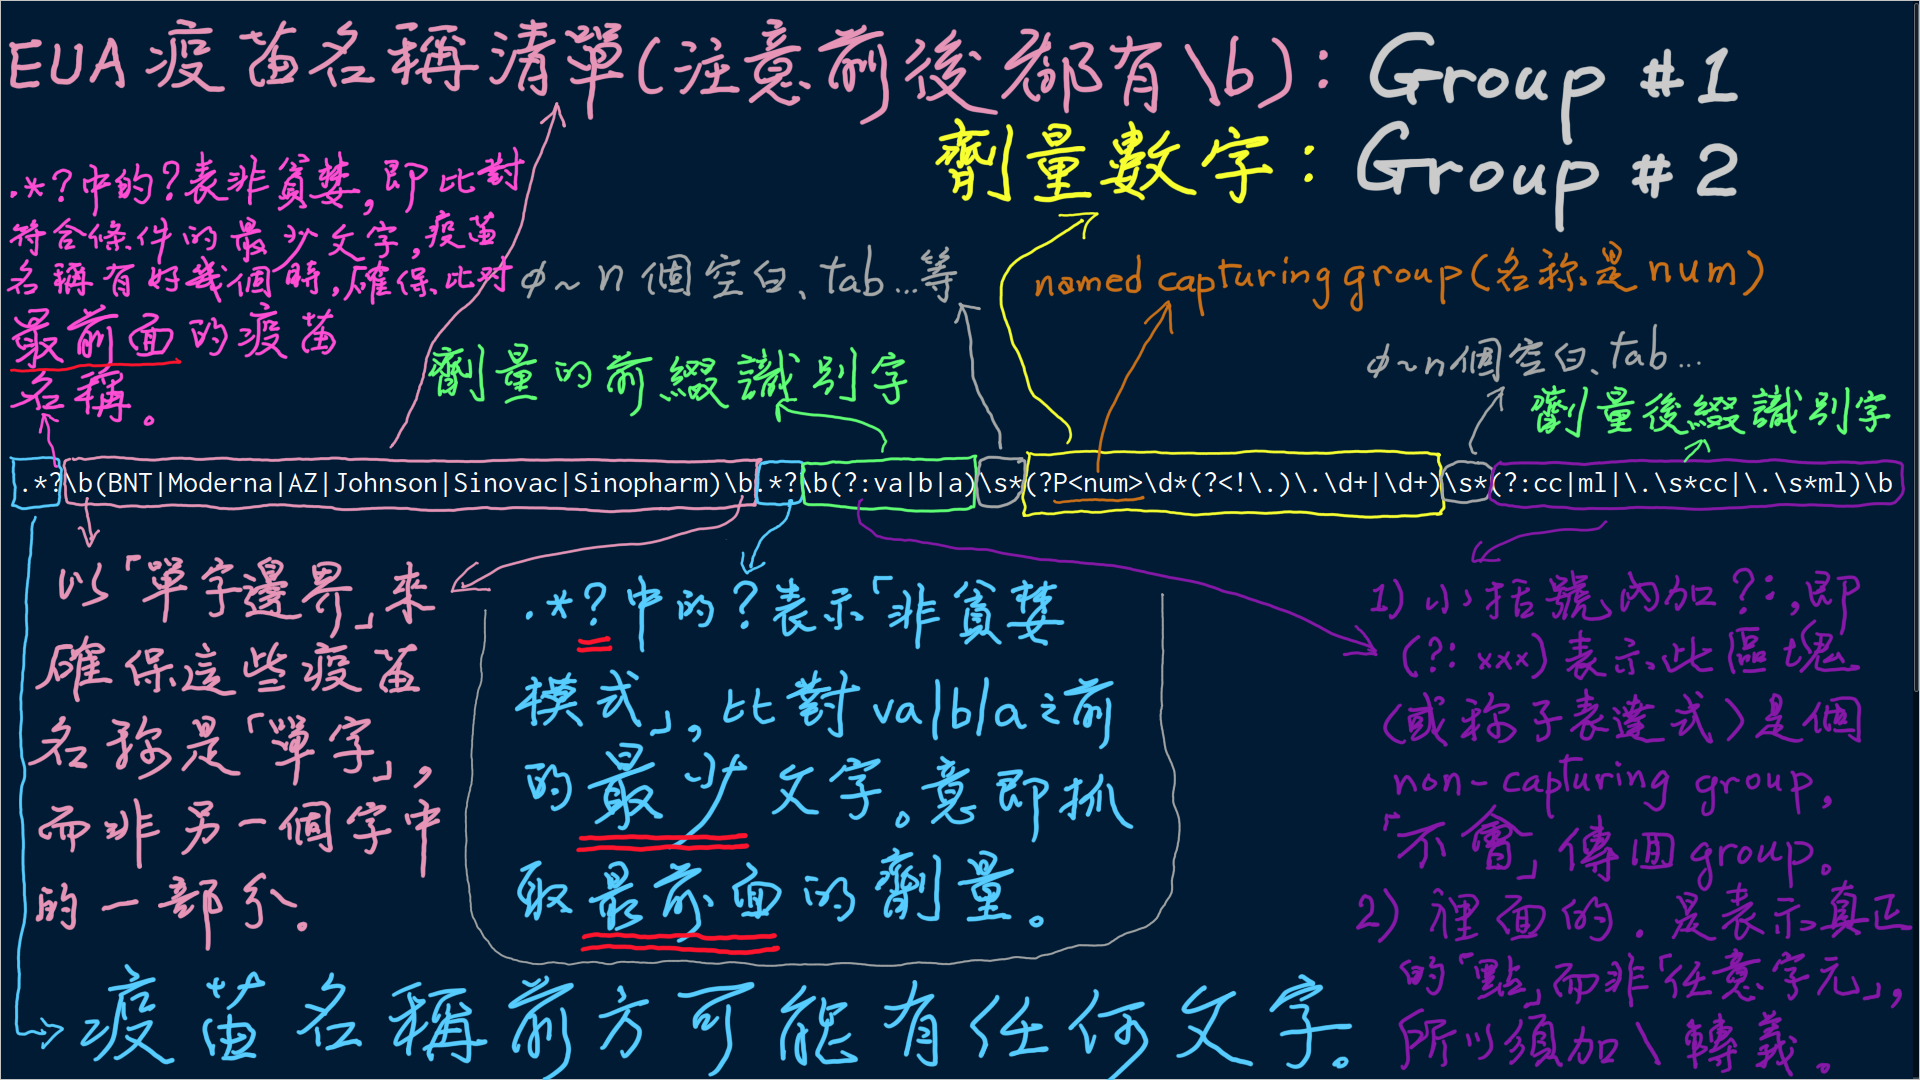 EUA疫苗名稱清單(注意前後都有\b): Group #1
劑量數字: Group #2
.*?中的?表非貪婪,即比對
符合條件的最少文字,疫苗
名稱有好幾個時,確保比对
最前面的疫苗
名稱。
φ~n個空白、tab...等
named capturing group(名称是num)
劑量的前綴識別字
φ~n個空白、tab...
劑量後綴識別字
.*?\b(BNT|Moderna|AZ|Johnson|Sinovac|Sinopharm)\b.*?\b(?:va|b|a)\s*(?P<num>\d*(?<!\.)\.\d+|\d+)\s*(?:cc|ml|\.\s*cc|\.\s*ml)\b
以「單字邊界」來
確保這些疫苗
名称是「單字」,
而非另一個字中
的一部分.
.*?中的?表示「非貪婪
模式」,比對va|b|a之前
的最少文字。意即抓
取最前面的劑量。
1)小括號內加?:,即
(?:xxx)表示此區塊
(或称子表達式)是個
non-capturing group,
「不會」傳回group。
2)裡面的.是表示真正
的「點」而非「任意字元」,
所以須加\轉義。
疫苗名稱前方可能有任何文字.